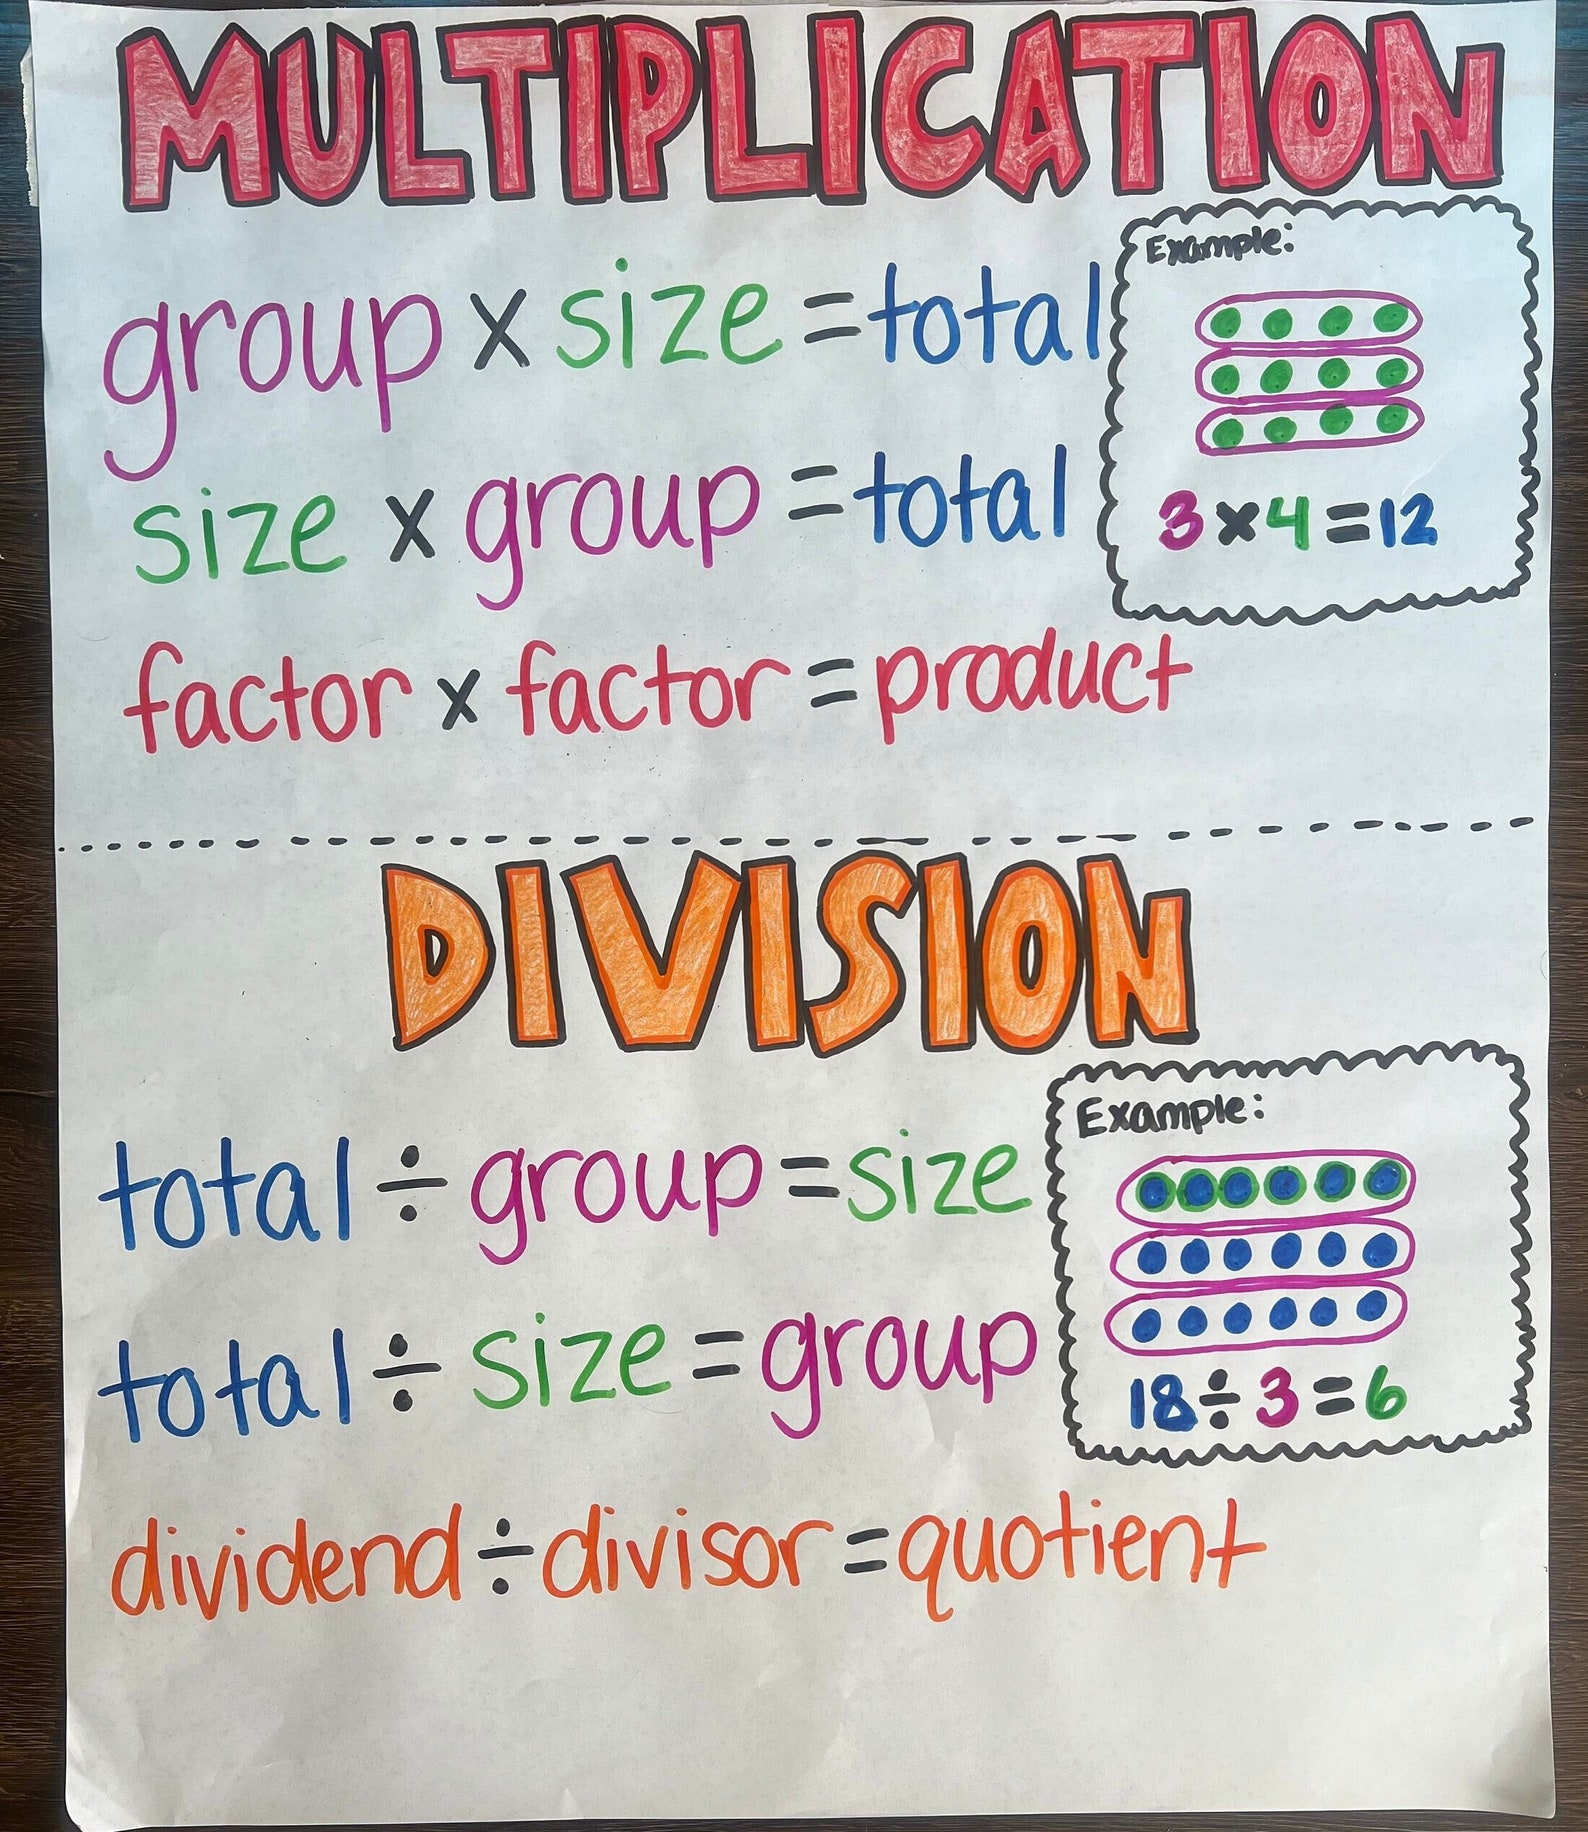 MULTIPLICATION
group x size = total
size x group = total
factor x factor = product
Example:
3 x 4 = 12
DIVISION
total ÷ group = size
total ÷ size = group
dividend ÷ divisor = quotient
Example:
18 ÷ 3 = 6